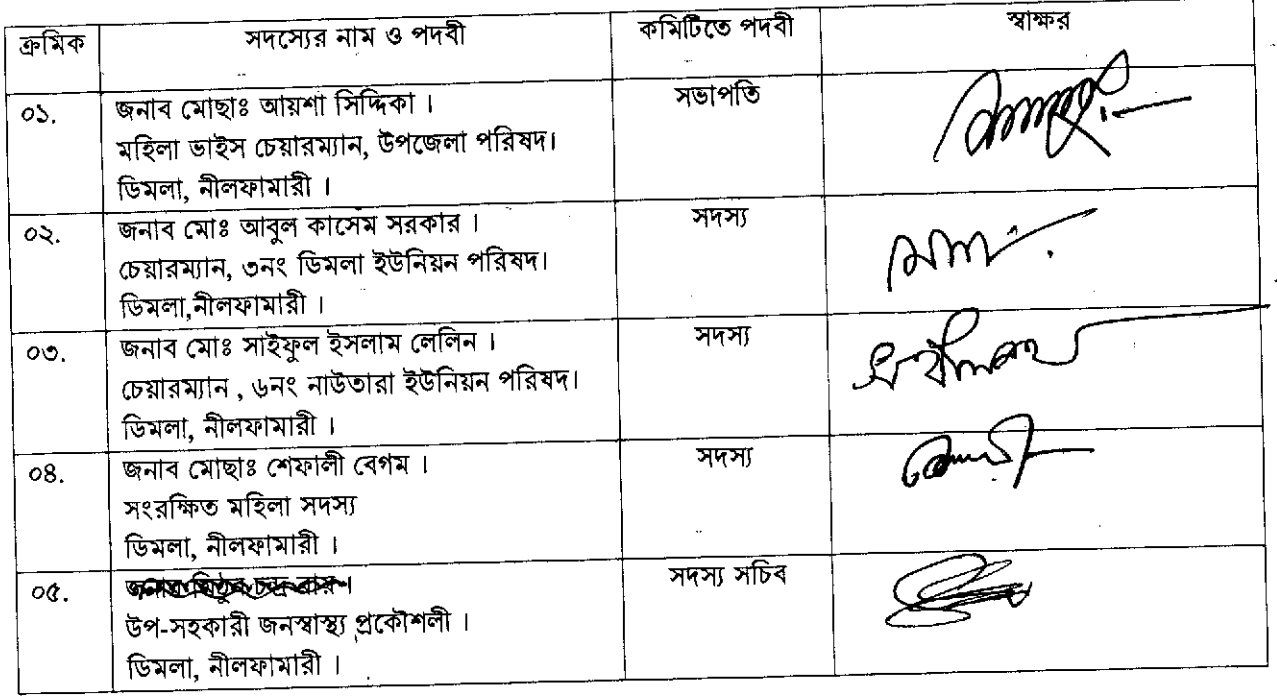 ক্রমিক সদস্যের নাম ও পদবী কমিটিতে পদবী স্বাক্ষর
০১. জনাব মোছাঃ আয়শা সিদ্দিকা । সভাপতি
মহিলা ভাইস চেয়ারম্যান, উপজেলা পরিষদ।
ডিমলা, নীলফামারী ।
০২. জনাব মোঃ আবুল কাসেম সরকার । সদস্য
চেয়ারম্যান, ৩নং ডিমলা ইউনিয়ন পরিষদ।
ডিমলা,নীলফামারী ।
০৩. জনাব মোঃ সাইফুল ইসলাম লেলিন । সদস্য
চেয়ারম্যান , ৬নং নাউতারা ইউনিয়ন পরিষদ।
ডিমলা, নীলফামারী ।
০৪. জনাব মোছাঃ শেফালী বেগম । সদস্য
সংরক্ষিত মহিলা সদস্য
ডিমলা, নীলফামারী ।
০৫. জনাব চন্দ্র রায় । সদস্য সচিব
উপ-সহকারী জনস্বাস্থ্য প্রকৌশলী ।
ডিমলা, নীলফামারী ।